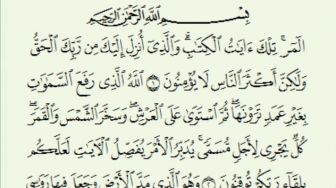 بِسْمِ ٱللَّهِ ٱلرَّحْمَٰنِ ٱلرَّحِيمِ
الٓمٓر ۚ تِلْكَ ءَايَٰتُ ٱلْكِتَٰبِ ۗ وَٱلَّذِىٓ أُنزِلَ إِلَيْكَ مِن رَّبِّكَ ٱلْحَقُّ
وَلَٰكِنَّ أَكْثَرَ ٱلنَّاسِ لَا يُؤْمِنُونَ ١ ٱللَّهُ ٱلَّذِى رَفَعَ ٱلسَّمَٰوَٰتِ
بِغَيْرِ عَمَدٍ تَرَوْنَهَا ۖ ثُمَّ ٱسْتَوَىٰ عَلَى ٱلْعَرْشِ ۖ وَسَخَّرَ ٱلشَّمْسَ وَٱلْقَمَرَ ۖ
كُلٌّ يَجْرِى لِأَجَلٍ مُّسَمًّى ۚ يُدَبِّرُ ٱلْأَمْرَ يُفَصِّلُ ٱلْءَايَٰتِ لَعَلَّكُم
بِلِقَآءِ رَبِّكُمْ تُوقِنُونَ ٢ وَهُوَ ٱلَّذِى مَدَّ ٱلْأَرْضَ وَجَعَلَ فِيهَا